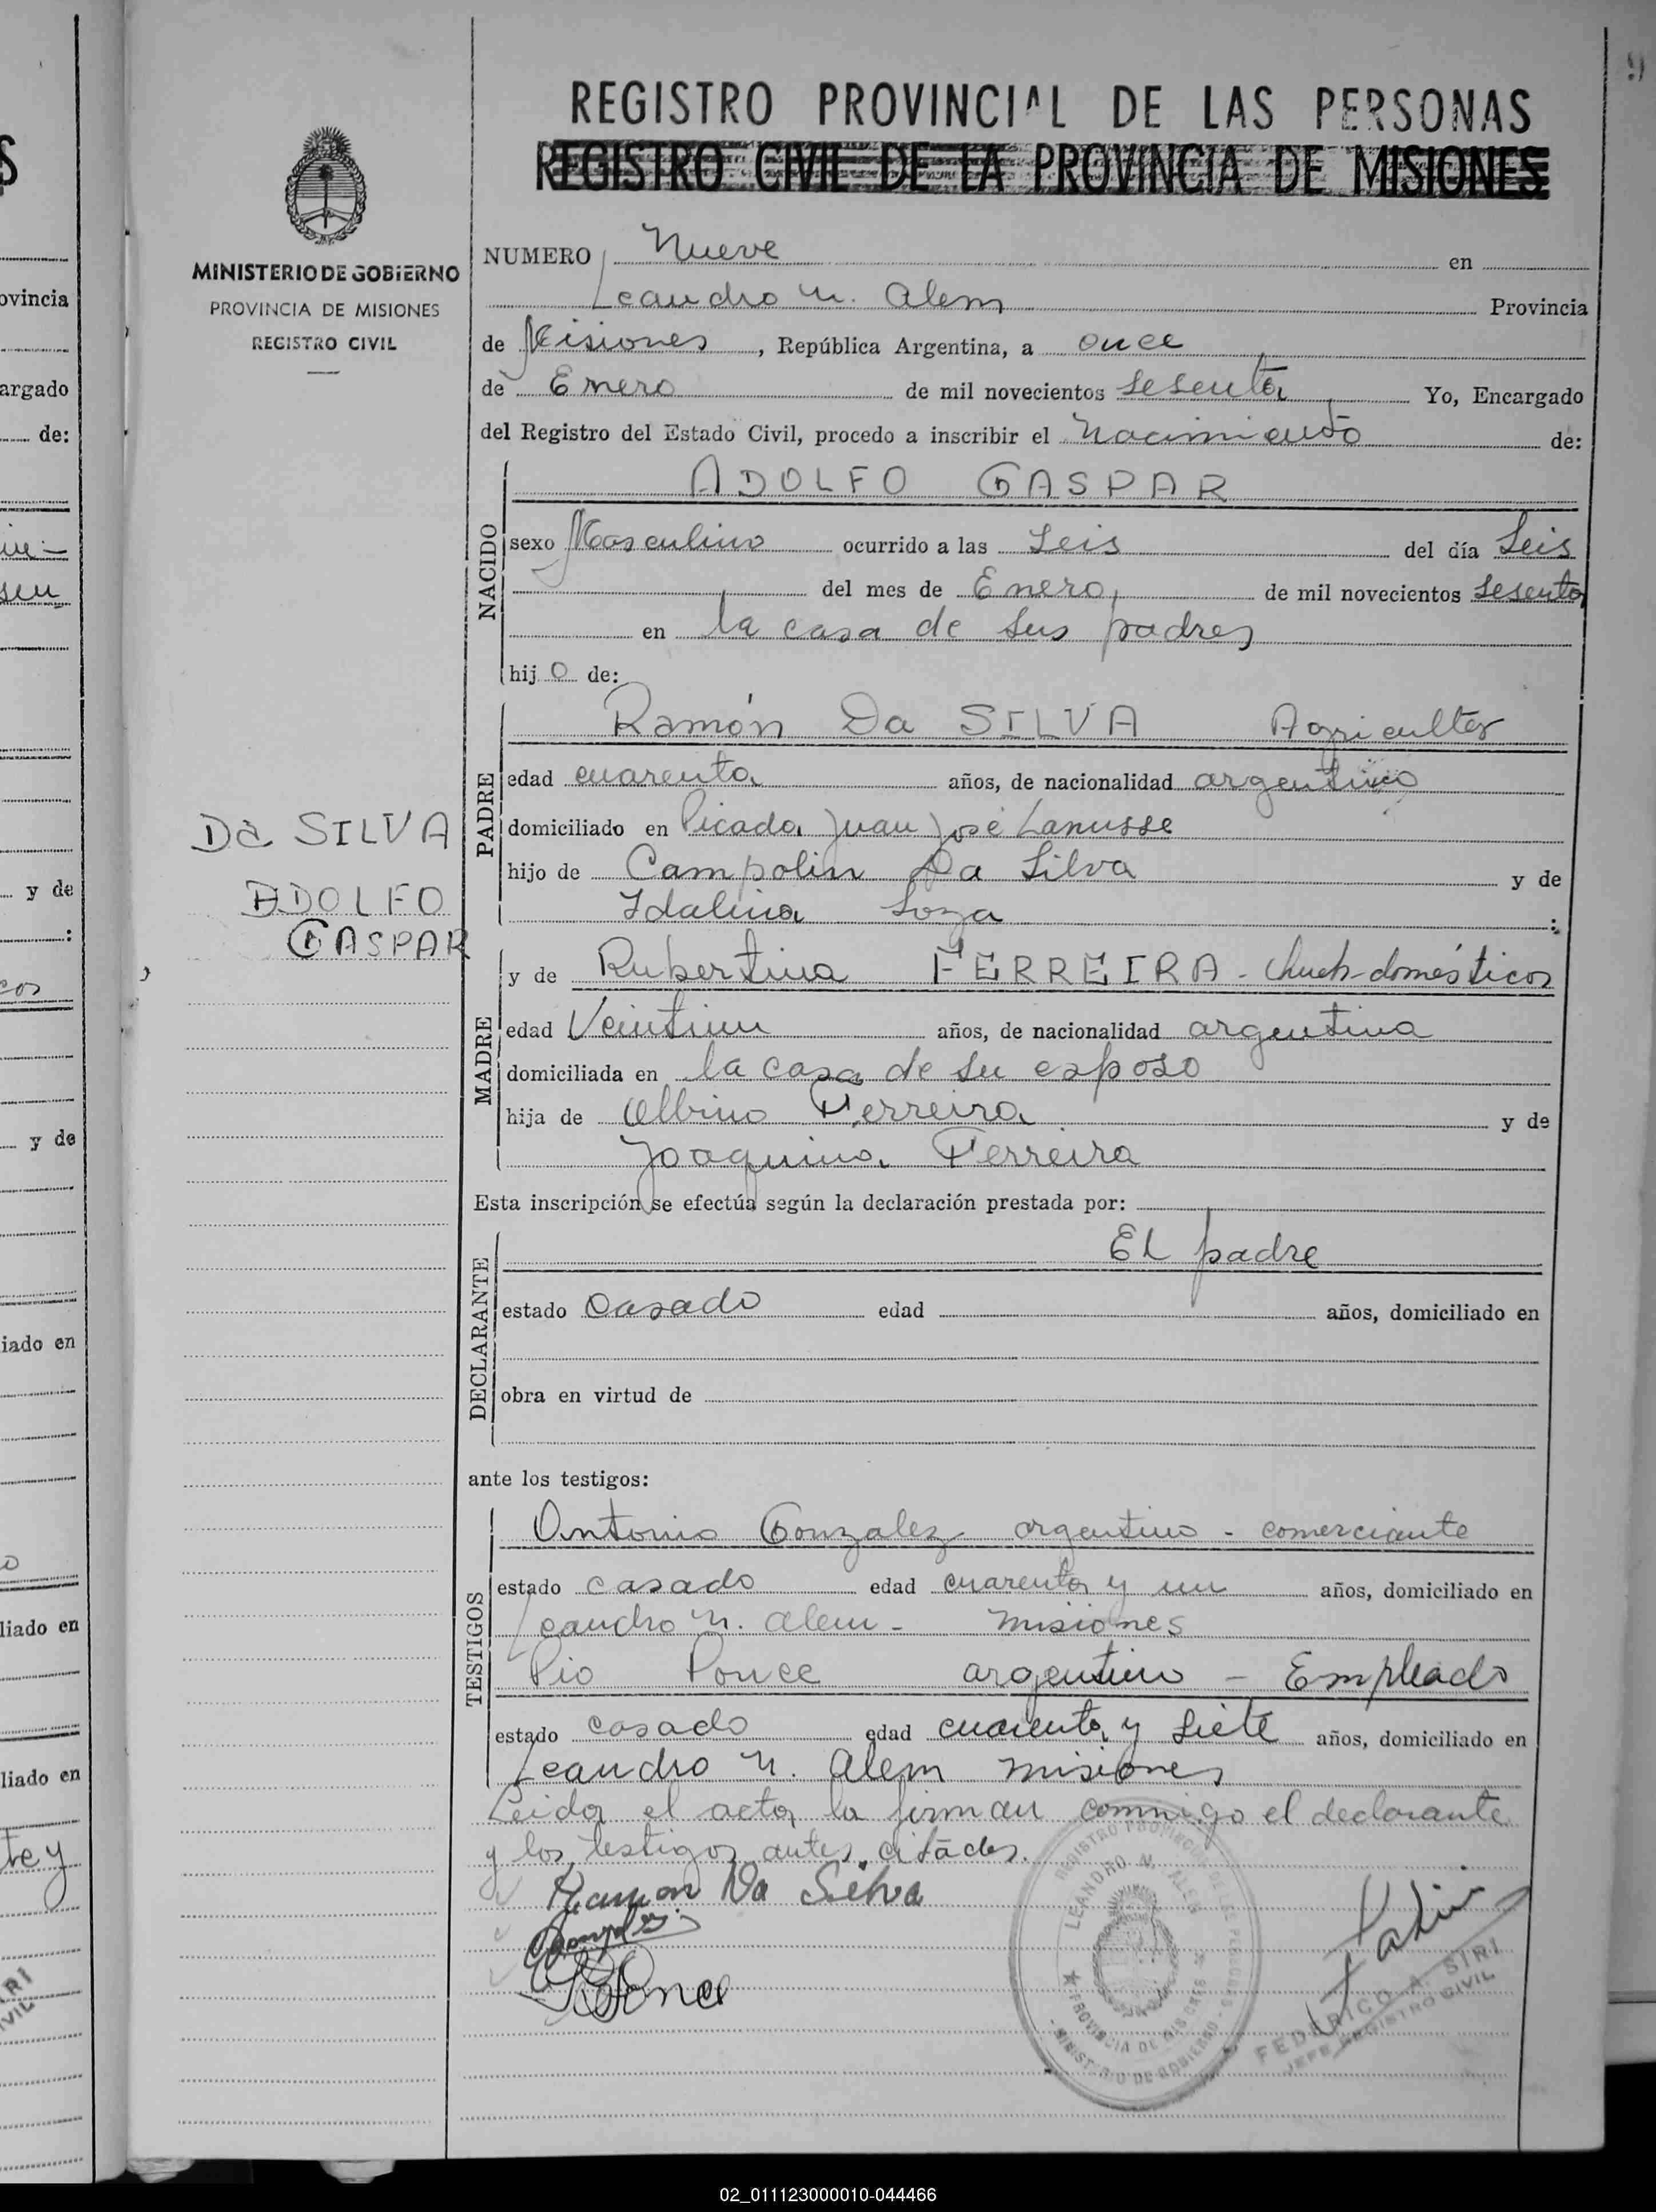 REGISTRO PROVINCIAL DE LAS PERSONAS
REGISTRO CIVIL DE LA PROVINCIA DE MISIONES
MINISTERIO DE GOBIERNO
PROVINCIA DE MISIONES
REGISTRO CIVIL
NUMERO Nueve en
Leandro N. Alem Provincia
de Misiones, República Argentina, a once
de Enero de mil novecientos sesenta Yo, Encargado
del Registro del Estado Civil, procedo a inscribir el Nacimiento de:
NACIDO
ADOLFO GASPAR
sexo Masculino ocurrido a las Seis del día Seis
del mes de Enero, de mil novecientos sesenta
en la casa de sus padres
hijo de:
PADRE
Ramón Da SILVA Agricultor
edad cuarenta años, de nacionalidad argentino
domiciliado en Picada Juan José Lanusse
hijo de Campolin Da Silva y de
Idalina Soza :
Da SILVA
ADOLFO
GASPAR
MADRE
y de Rubertina FERREIRA - domésticos
edad Veintiun años, de nacionalidad argentina
domiciliada en la casa de su esposo
hija de Albino Ferreira y de
Joaquina Ferreira
Esta inscripción se efectúa según la declaración prestada por:
DECLARANTE
El padre
estado casado edad años, domiciliado en
obra en virtud de
ante los testigos:
TESTIGOS
Antonio Gonzalez argentino - comerciante
estado casado edad cuarenta y un años, domiciliado en
Leandro N. Alem - Misiones
Pio Ponce argentino - Empleado
estado casado edad cuarenta y siete años, domiciliado en
Leandro N. Alem Misiones
Leida el acta, la firman conmigo el declarante
y los testigos antes citados.
Ramon Da Silva
Ponce
REGISTRO PROVINCIAL DE LAS PERSONAS
LEANDRO N. ALEM
PROVINCIA DE MISIONES
MINISTERIO DE GOBIERNO
FEDERICO A. SIRI
JEFE REGISTRO CIVIL
ovincia
argado
de:
y de
:
y de
iado en
liado en
liado en
9
02_011123000010-044466